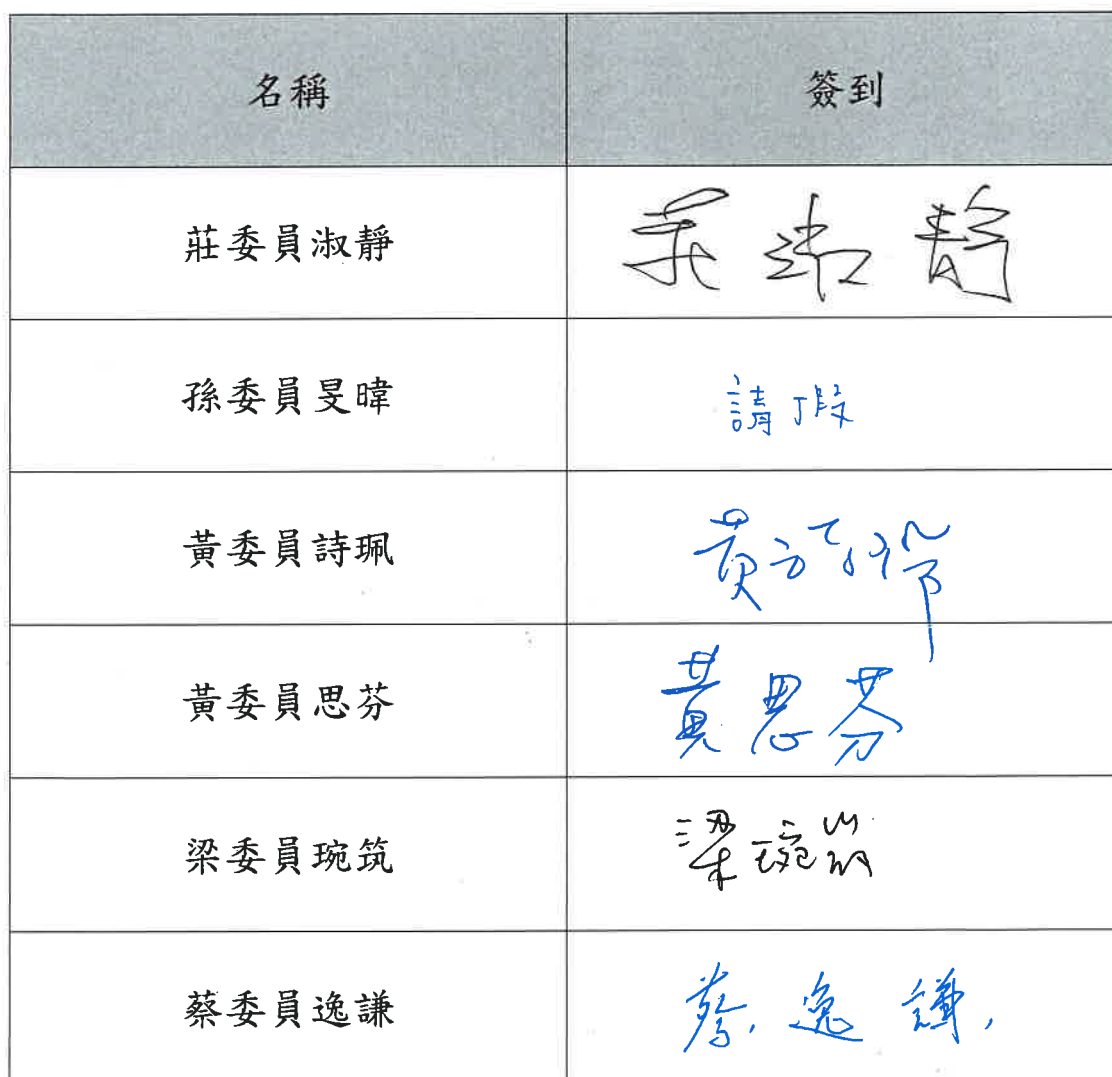 名稱 簽到
莊委員淑靜 莊淑靜
孫委員旻暐 請假
黃委員詩珮 黃詩珮
黃委員思芬 黃思芬
梁委員琬筑 梁琬筑
蔡委員逸謙 蔡逸謙